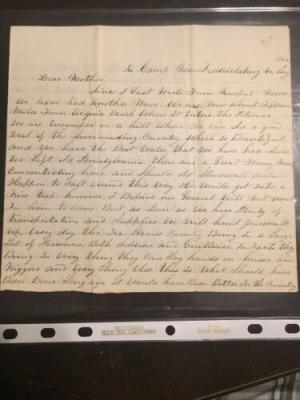 In Camp Near Fredericksburg Va Aug
Dear Mother
Since I Last Wrote From Newport News
We have had Another Move. We are Now about fifteen
Miles From Acquia Creek Where It Enters the Potomac
We are Encamped on a hill Where We Can See a good
Deal of the Surrounding Country Which Is beautiful
and We have the Best Water That We have had since
We Left old Pennsylvania there are a Great Many Men
Concentrating here and Should old Stonewall Jackson
Happen to Call Around This Way He Would get Into a
Nice Trap however I Believe our General Will Not Wait
him to Come But as Soon as We have Plenty of
Transportation and Supplies We Will hunt Jackson It
Up Every day the Ira Harris Cavalry Bring In a Large
Lot of Prisoners Both Soldiers and Guerillas In Fact they
Bring In Every Thing they Can Lay hands on horses and
Niggers and Every thing Else this Is What Should have
Been Done Long ago It Would have Been Better for the Country